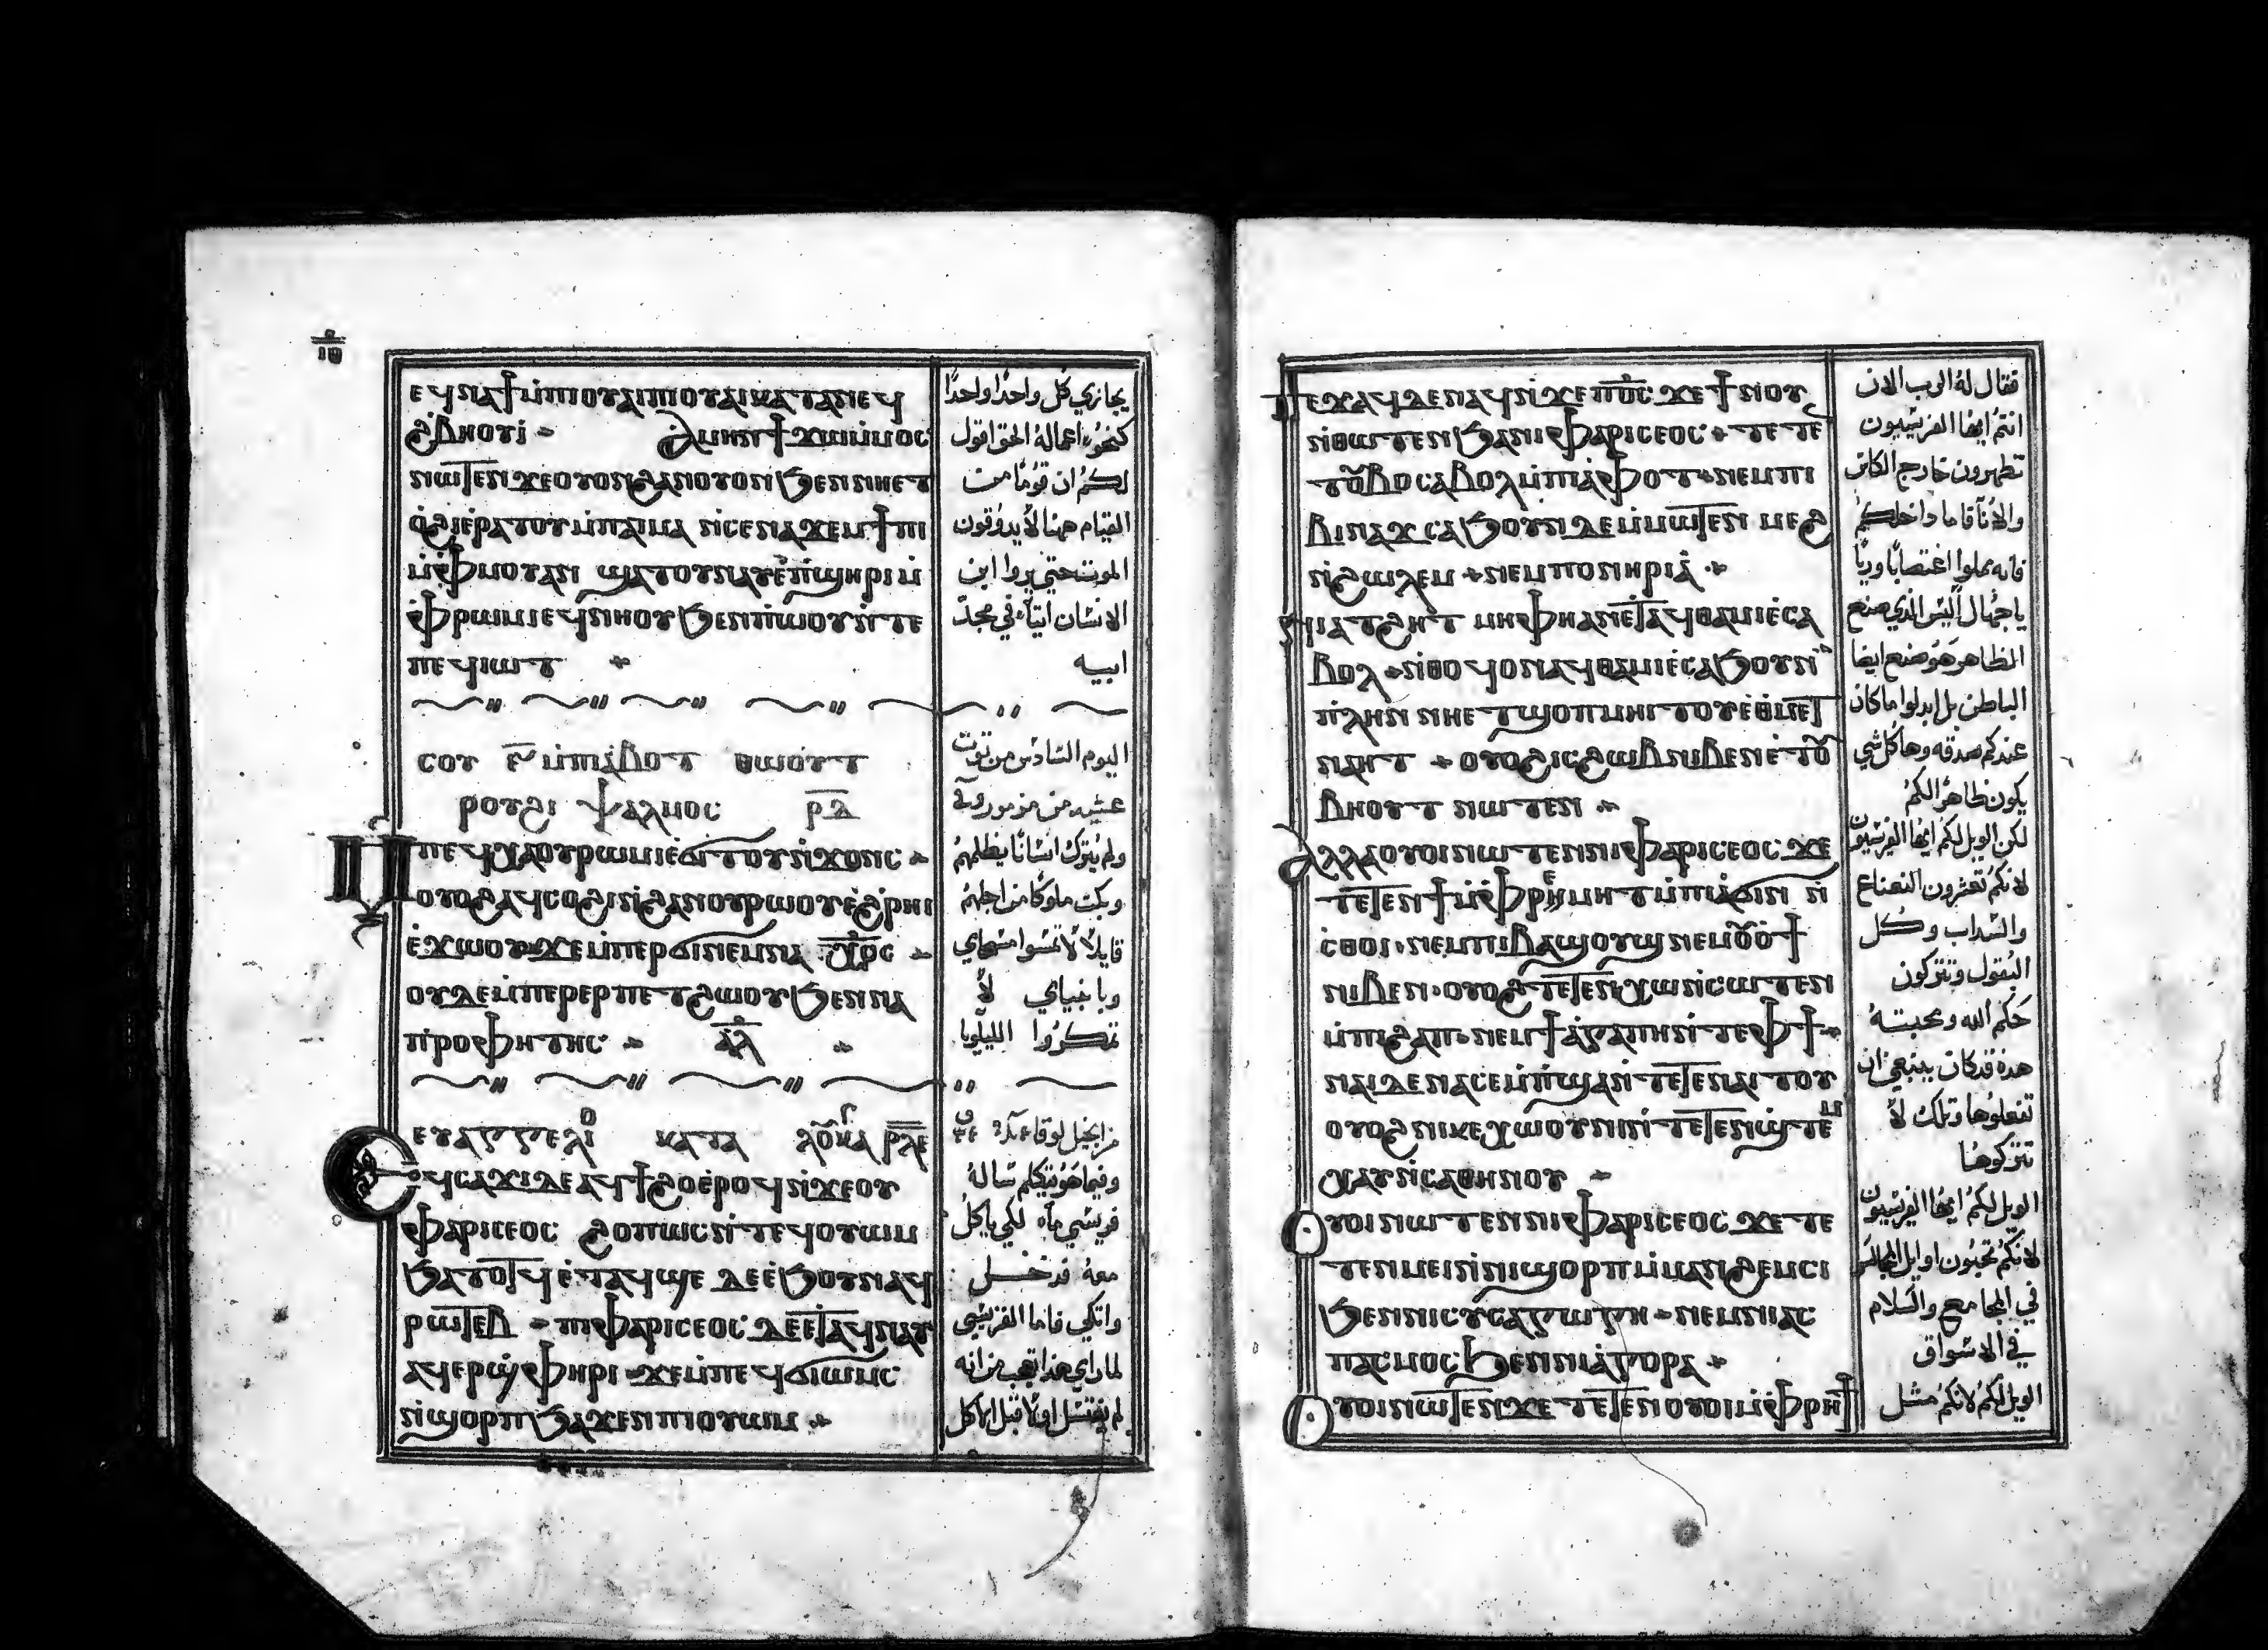 ⲉϥⲛⲁϯⲙ̇ⲡⲓⲟⲩⲁⲓⲡⲓⲟⲩⲁⲓⲕⲁⲧⲁⲛⲉϥ
ϩ̇ⲃⲏⲟⲩⲓ̇ ⲁⲙⲏⲛϯϫⲱⲙ̇ⲙⲟⲥ
ⲛⲱⲧⲉⲛϫⲉⲟⲩⲟⲛϩⲁⲛⲟⲩⲟⲛϧⲉⲛⲛⲏⲉⲧ
ⲟ̇ϩⲓⲉ̇ⲣⲁⲧⲟⲩⲙ̇ⲡⲁⲓⲙⲁ ⲛ̇ⲥⲉⲛⲁϫⲉⲙϯⲡⲓ
ⲙ̇ⲫⲙⲟⲩⲁⲛ ϣⲁⲧⲟⲩⲛⲁⲩⲉ̇ⲡ̇ϣⲏⲣⲓⲙ̇
ⲫ̇ⲣⲱⲙⲓⲉϥⲛⲏⲟⲩϧⲉⲛⲡ̇ⲱⲟⲩⲛ̇ⲧⲉ
ⲡⲉϥⲓⲱⲧ
ⲥⲟⲩ ⲋ̅ ⲙ̇ⲡⲓⲁ̇ⲃⲟⲧ ⲑⲱⲟⲩⲧ
ⲣⲟⲩϩⲓ ⲯⲁⲗⲙⲟⲥ ⲣ̅ⲇ̅
ⲙ̇ⲡⲉϥⲭⲁⲟⲩⲣⲱⲙⲓⲉ̇ϭⲓⲧⲟⲩⲛ̇ϫⲟⲛⲥ
ⲟⲩⲟϩⲁϥⲥⲟϩⲓⲛ̇ϩⲁⲛⲟⲩⲣⲱⲟⲩⲉ̇ϩ̇ⲣⲏⲓ
ⲉ̇ϫⲱⲟⲩϫⲉⲙ̇ⲡⲉⲣϭⲓⲛⲉⲙⲛⲁ ⲭ̅ⲣ̅ⲟⲥ
ⲟⲩⲇⲉⲙ̇ⲡⲉⲣⲉⲣⲡⲉⲧϩⲱⲟⲩϧⲉⲛⲛⲁ
ⲡ̇ⲣⲟⲫⲏⲧⲏⲥ ⲁ̅ⲗ̅
ⲉⲩⲁⲅⲅⲉⲗⲓⲟ ⲕⲁⲧⲁ ⲗⲟⲩⲕⲁ ⲣ̅ⲗ̅ⲉ̅
ⲉϥⲥⲁϫⲓⲇⲉⲁϥϯϩⲟⲉ̇ⲣⲟϥⲛ̇ϫⲉⲟⲩ
ⲫⲁⲣⲓⲥⲉⲟⲥ ϩⲟⲡⲱⲥⲛ̇ⲧⲉϥⲟⲩⲱⲙ
ϧⲁⲧⲟⲧϥ ⲉ̇ⲧⲁϥϣⲉ ⲇⲉⲉ̇ϧⲟⲩⲛⲁϥ
ⲣⲱⲧⲉⲃ ⲡⲓⲫⲁⲣⲓⲥⲉⲟⲥ ⲇⲉⲉ̇ⲧⲁϥⲛⲁⲩ
ⲁϥⲉⲣϣ̇ⲫⲏⲣⲓ ϫⲉⲙ̇ⲡⲉϥϭⲓⲱⲙⲥ
ⲛ̇ϣⲟⲣⲡϧⲁϫⲉⲛⲡⲓⲟⲩⲱⲙ
يجازي كل واحدًا واحدًا
كنحو اعماله الحق اقول
لكم ان قومًا من
القيام ههنا لا يدوقون
الموت حتي يروا ابن
الانسان اتيًا في مجد
ابيه
اليوم السادس من توت
عشيه من مزمور
ولم يترك انسانًا يظلمهم
وبكت ملوكًا من اجلهم
قايلًا لا تمسوا مسحاي
وبانبياي لا
تمكروا الليلويا
من انجيل لوقا
وفيما هو يتكلم ساله
فريسي لكي ياكل
معه فدخل
واتكي فاما الفريسي
لما راي هذا تعجب من انه
لم يغتسل اولًا قبل الاكل
ⲡⲉϫⲁϥⲇⲉⲛⲁϥⲛ̇ϫⲉⲡ̅ⲟ̅ⲥ̅ ϫⲉϯⲛⲟⲩ
ⲛ̇ⲑⲱⲧⲉⲛϧⲁⲛⲓⲫⲁⲣⲓⲥⲉⲟⲥ ⲧⲉⲧⲉ
ⲧⲟⲩⲃⲟⲥⲁⲃⲟⲗⲙ̇ⲡⲓⲁ̇ⲫⲟⲧ ⲛⲉⲙⲡⲓ
ⲃⲓⲛⲁϫ ⲥⲁϧⲟⲩⲛⲇⲉⲙ̇ⲙⲱⲧⲉⲛ ⲙⲉϩ
ⲛ̇ϩⲱⲗⲉⲙ ⲛⲉⲙⲡⲟⲛⲏⲣⲓⲁ̇
ⲛⲓⲁⲧϩⲏⲧ ⲙⲏⲫⲏⲁⲛⲉ̇ⲧⲁϥⲑⲁⲙⲓⲉ̇ⲥⲁ
ⲃⲟⲗ ⲛ̇ⲑⲟϥⲟⲛⲁϥⲑⲁⲙⲓⲉ̇ⲥⲁϧⲟⲩⲛ
ⲡ̇ⲗⲏⲛ ⲛⲏⲉⲧϣⲟⲡⲙⲏⲓⲧⲟⲩⲉ̇ⲑⲙⲉⲧ
ⲛⲁⲏⲧ ⲟⲩⲟϩⲓⲥϩⲱⲃⲛⲓⲃⲉⲛⲉ̇ⲧⲟⲩ
ⲃⲏⲟⲩⲧ ⲛⲱⲧⲉⲛ
ⲁⲗⲗⲁⲟⲩⲟⲓⲛⲱⲧⲉⲛⲛⲓⲫⲁⲣⲓⲥⲉⲟⲥ ϫⲉ
ⲧⲉⲧⲉⲛϯⲙ̇ⲫⲣⲉⲙⲏⲧⲙ̇ⲡⲓⲁϭⲓⲛ ⲛ̇
ⲥ̇ⲑⲟⲓ ⲛⲉⲙⲡⲓⲃⲁϣⲟⲩϣ ⲛⲉⲙⲟⲩⲟϯ
ⲛⲓⲃⲉⲛ ⲟⲩⲟϩⲧⲉⲧⲉⲛⲭⲱⲛ̇ⲥⲱⲧⲉⲛ
ⲙ̇ⲡⲓϩⲁⲡ ⲛⲉⲙϯⲁ̇ⲅⲁⲡⲏⲛ̇ⲧⲉⲫϯ
ⲛⲁⲓⲇⲉⲛⲁⲥⲉⲙ̇ⲡ̇ϣⲁⲛ̇ⲧⲉⲧⲉⲛⲁⲓⲧⲟⲩ
ⲟⲩⲟϩⲛⲓⲕⲉⲭⲱⲟⲩⲛⲓⲛ̇ⲧⲉⲧⲉⲛϣ̇ⲧⲉⲙ
ⲭⲁⲩⲛ̇ⲥⲁⲑⲏⲛⲟⲩ
ⲟⲩⲟⲓⲛⲱⲧⲉⲛⲛⲓⲫⲁⲣⲓⲥⲉⲟⲥ ϫⲉⲧⲉ
ⲧⲉⲛⲙⲉⲓⲛ̇ⲛⲓϣⲟⲣⲡⲙ̇ⲙⲁⲛϩⲉⲙⲥⲓ
ϧⲉⲛⲛⲓⲥⲩⲛⲁⲅⲱⲅⲏ ⲛⲉⲙⲛⲓⲁⲥ
ⲡⲁⲥⲙⲟⲥ ϧⲉⲛⲛⲓⲁ̇ⲅⲟⲣⲁ
ⲟⲩⲟⲓⲛⲱⲧⲉⲛϫⲉ ⲧⲉⲧⲉⲛⲟⲩⲟⲓⲙ̇ⲫⲣⲏϯ
فقال له الرب الان
انتم ايها الفريسيون
تطهرون خارج الكاس
والانآ فاما داخلكم
فانه مملوا اغتصابًا وريآ
يا جهال اليس الذي صنع
الظاهر هو صنع ايضا
الباطن بل ابدلوا ما كان
عندكم صدقه وها كل شي
يكون طاهرًا لكم
لكن الويل لكم ايها الفريسيون
لانكم تعشرون النعناع
والسداب وكل
البقول وتتركون
حكم الله ومحبته
هذه قد كان ينبغي ان
تفعلوها وتلك لا
تتركوها
الويل لكم ايها الفريسيون
لانكم تحبون اوايل المجالس
في المجامع والسلام
في الاسواق
الويل لكم لانكم مثل